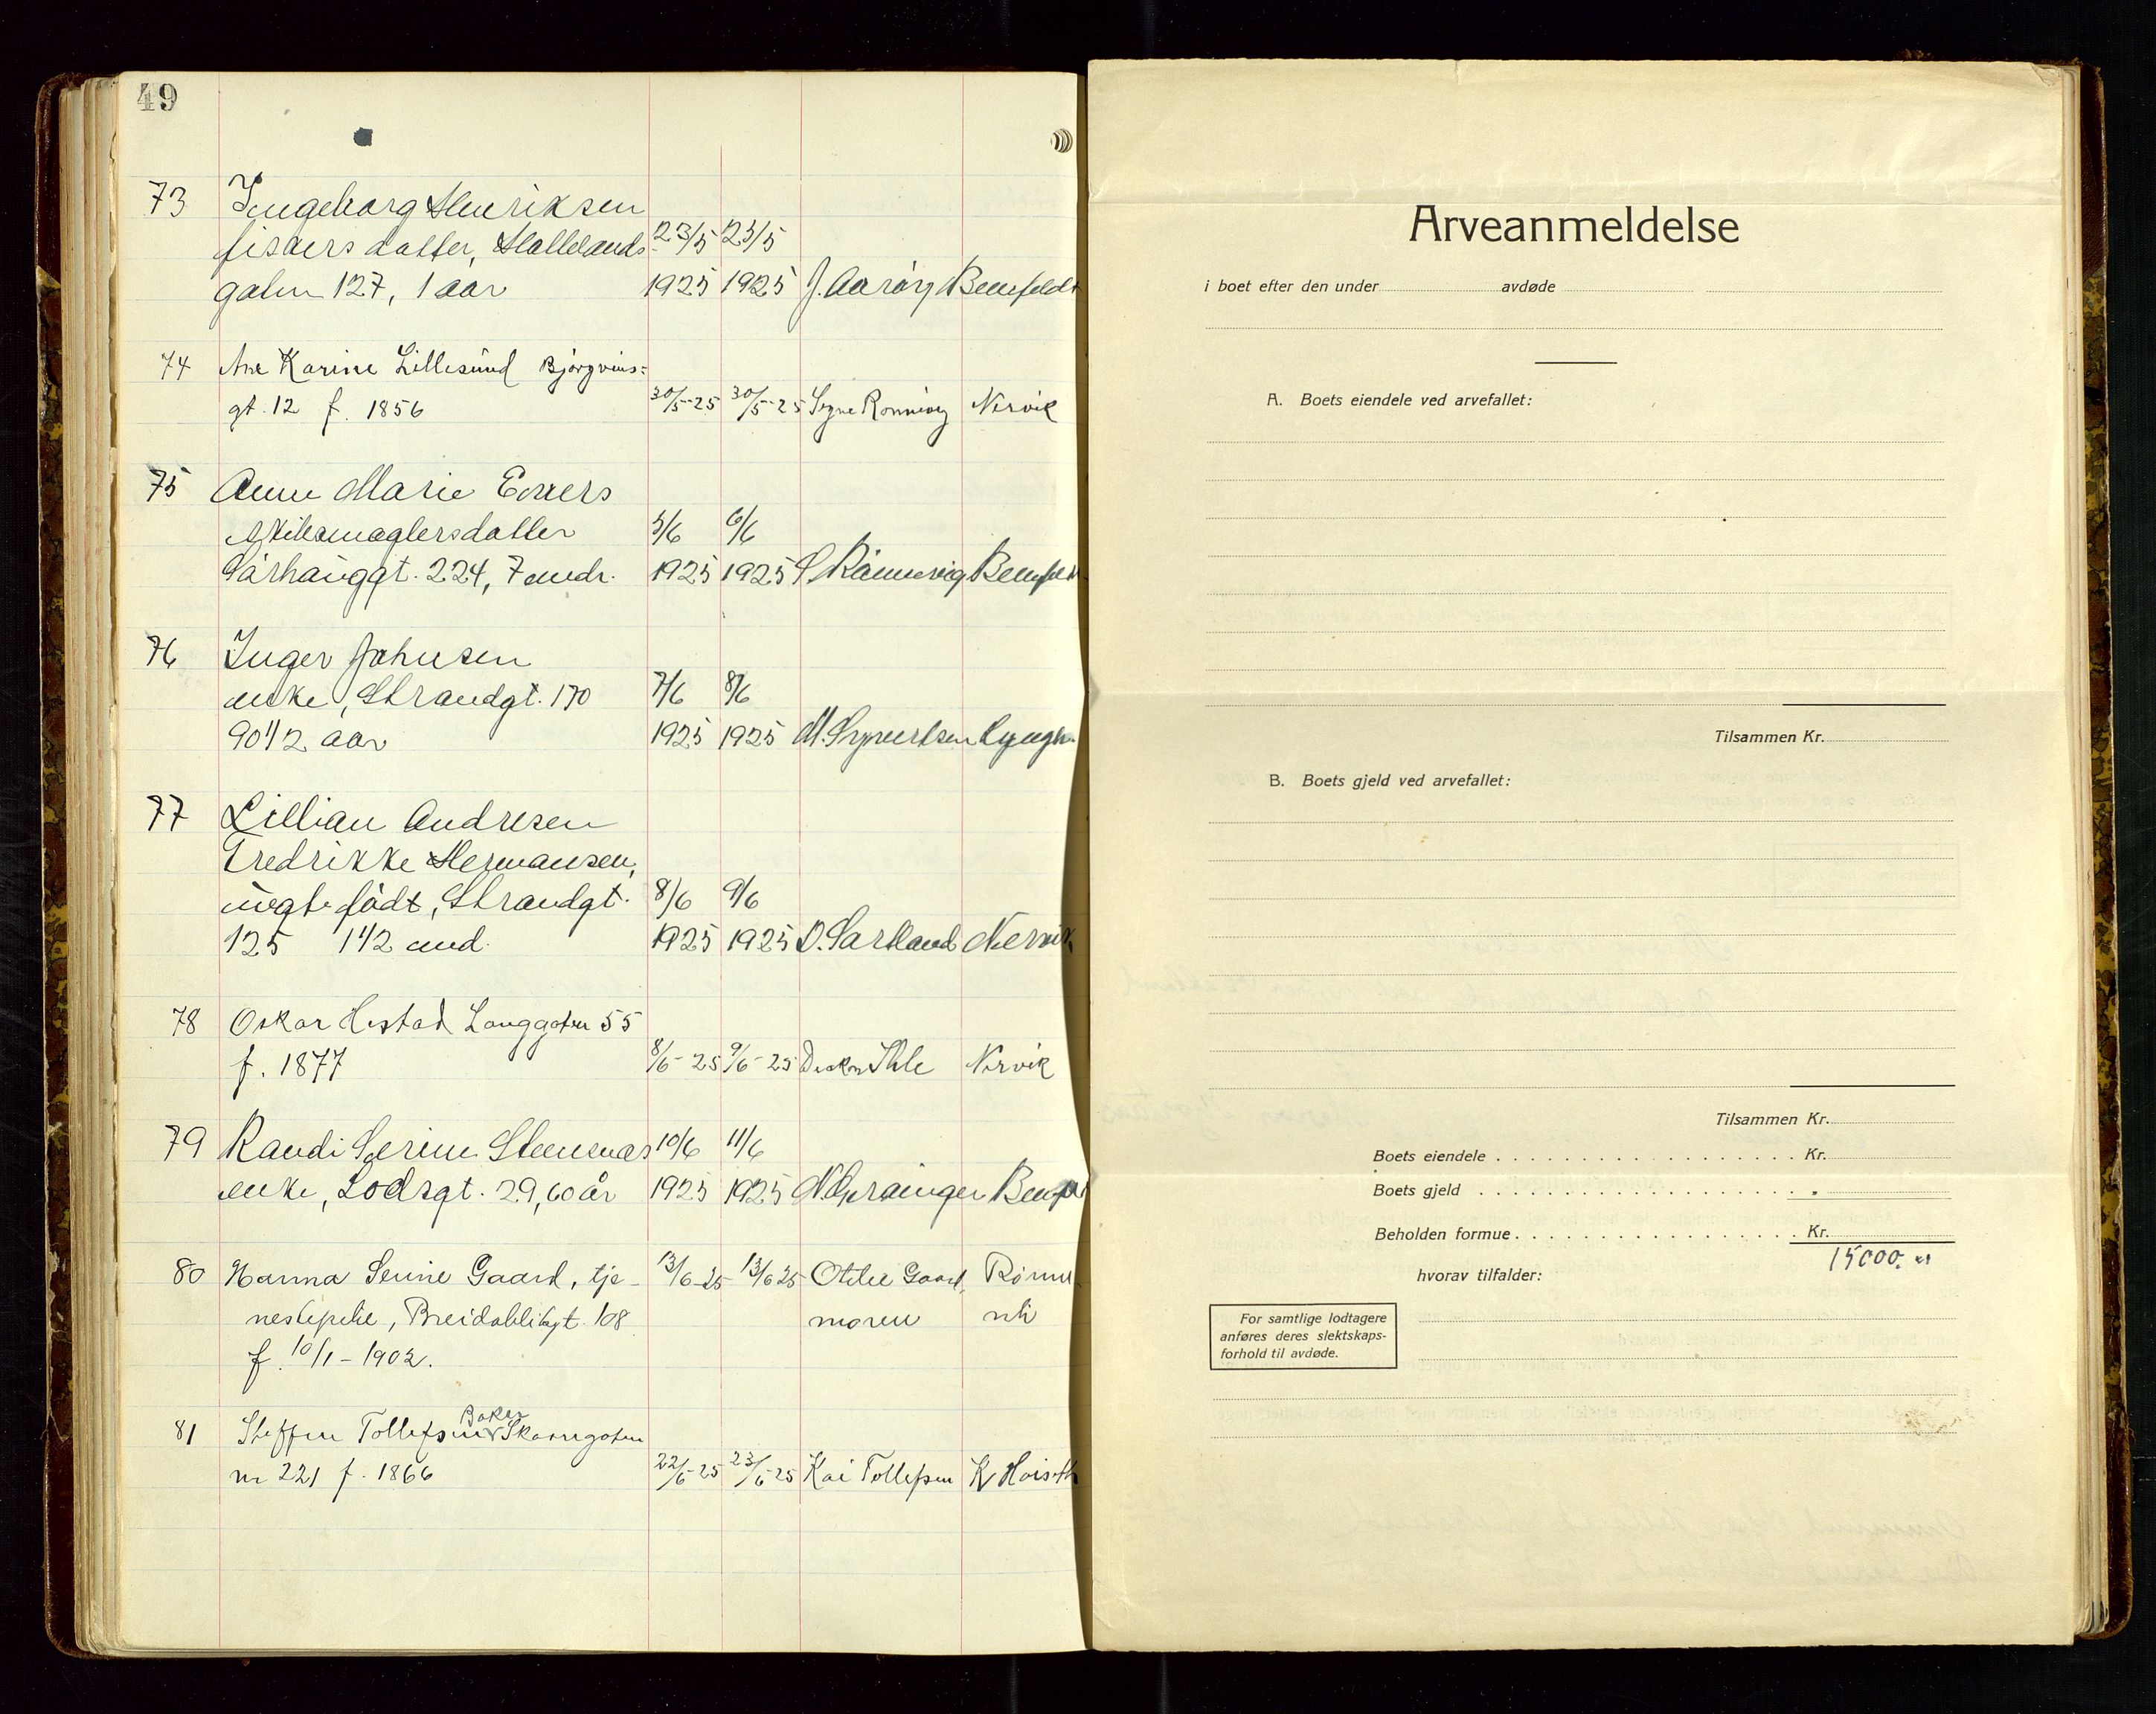 49
73 Ingeborg Henriksen
fiskers datter, Hallelands- 23/5 23/5
gaten 127, 1 aar 1925 1925 J. Aarøy Bennfeldt
74 Ane Karine Lillesund Bjørgvins-
gt. 12 f. 1856 30/5-25 30/5-25 Signe Rønnevig Nervik
75 Anne Marie Evers
Skibsmæglersdatter 5/6 6/6
Sørhauggt. 224, 7 mndr. 1925 1925 S. Rønnevig
76 Inger Johnsen
enke, Strandgt. 170 7/6 8/6
90 1/2 aar 1925 1925 M. Syvertsen
77 Lillian Andresen
Fredrikke Hermansen,
uegte født, Strandgt. 8/6 9/6
125 1 1/2 mnd. 1925 1925 O. Sartland Nervik
78 Oskar Hestad Langgaten 55
f. 1877 8/6-25 9/6-25 Ihle Nervik
79 Randi Serine Steensnæs 10/6 11/6
enke, Lodsgt. 29, 60 år 1925 1925 N. Grainger
80 Hanna Serine Gaard, tje- 13/6-25 13/6 25 Otilie Gaard,
nestepike, Breidablikgt. 108 moren
f. 10/1-1902.
Baker
81 Steffen Tollefsen Skaaregaten
nr 221 f. 1866 22/6-25 23/6-25 Kai Tollefsen
Arveanmeldelse
i boet efter den under avdøde
A. Boets eiendele ved arvefallet:
Tilsammen Kr.
B. Boets gjeld ved arvefallet:
Tilsammen Kr.
Boets eiendele . . . . . . . . . . . . . . . . . . . Kr.
Boets gjeld . . . . . . . . . . . . . . . . . . . . . "
Beholden formue . . . . . . . . . . . . . . . . . Kr.
15000.
hvorav tilfalder:
For samtlige lodtagere
anføres deres slektskaps-
forhold til avdøde.